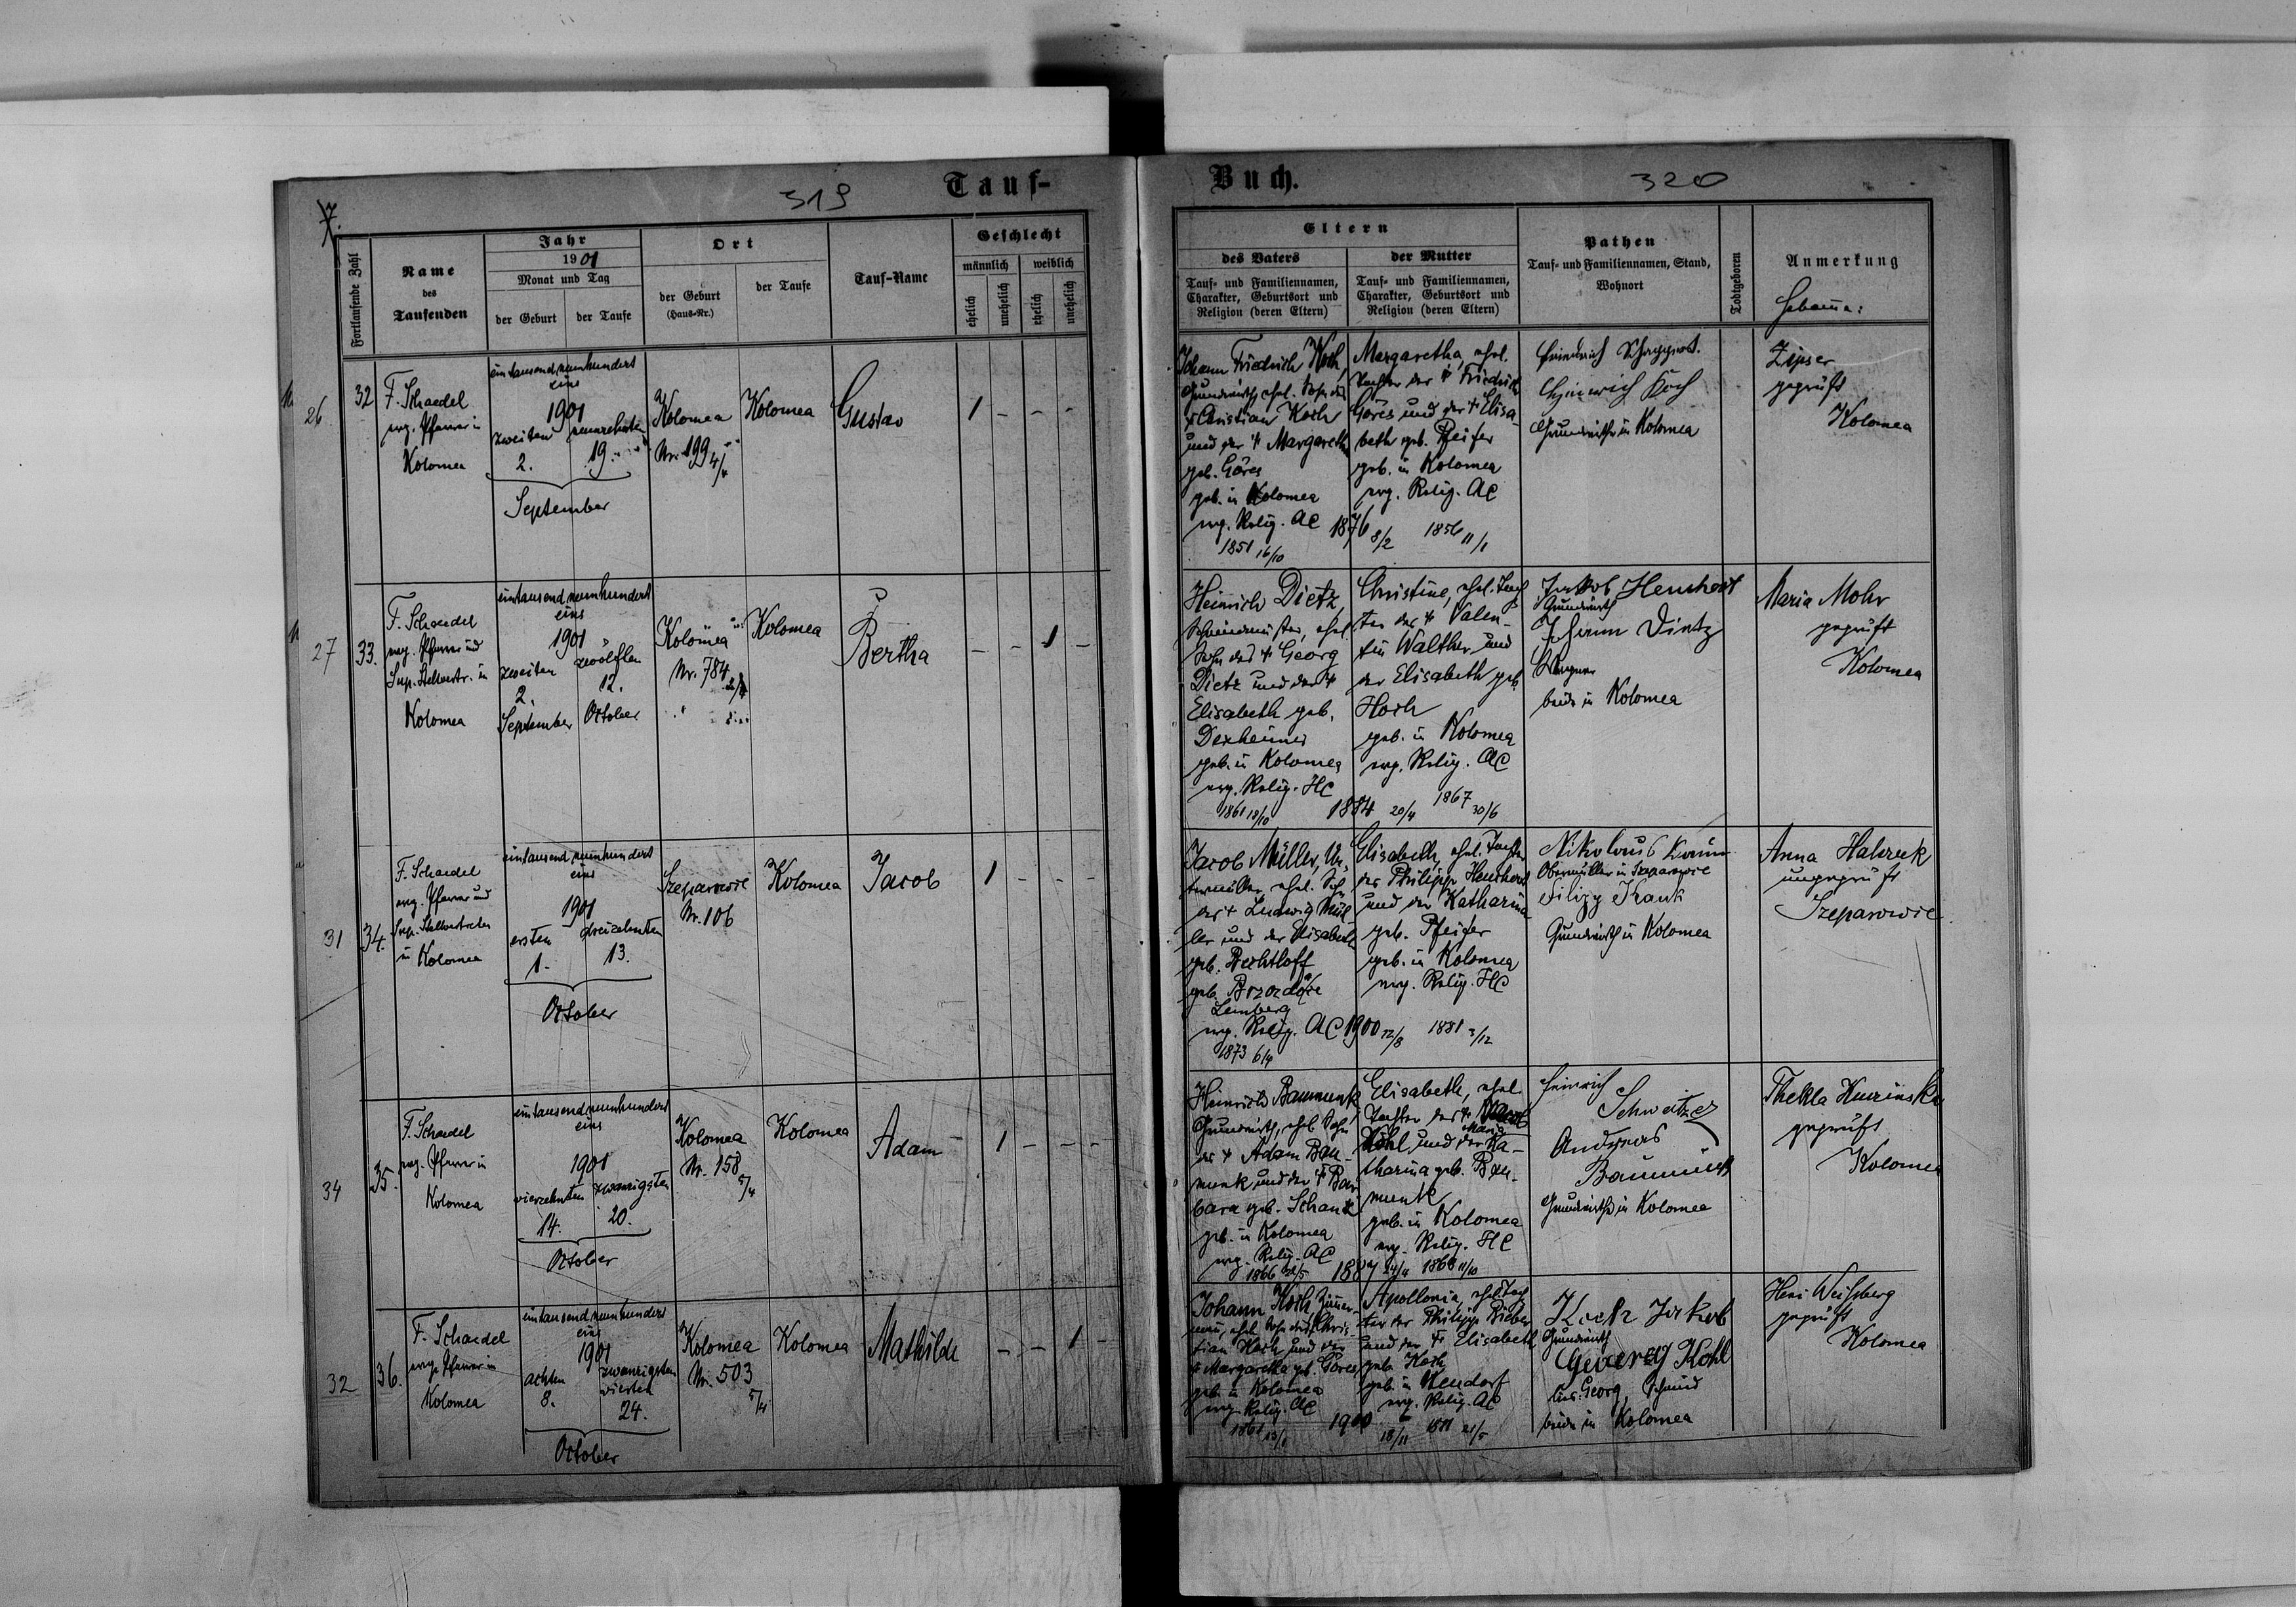 319
Tauf-
7.
Fortlaufende Zahl
Name
des
Taufenden
Jahr
1901
Monat und Tag
der Geburt
der Taufe
Ort
der Geburt
(Haus-Nr.)
der Taufe
Tauf-Name
Geschlecht
männlich
weiblich
ehelich
unehelich
ehelich
unehelich
26
32
F. Schaedel
evg. Pfarrer in
Kolomea
eintausend neunhundert
eins
1901
zweiten neunzehnten
2. 19.
September
Kolomea
Nr. 199 4/4
Kolomea
Gustav
1 - - -
27
33.
F. Schaedel
evg. Pfarrer und
Sup. Stellvertr. in
Kolomea
eintausend neunhundert
eins
1901
zweiten zwölften
2. 12.
September October
Kolomea
Nr. 784
Kolomea
Bertha
- - 1 -
31
34.
F. Schaedel
evg. Pfarrer und
Sup. Stellvertreter
in Kolomea
eintausend neunhundert
eins
1901
ersten dreizehnten
1. 13.
October
Szeparowce
Nr. 106
Kolomea
Jacob
1 - - -
34
35.
F. Schaedel
evg. Pfarrer in
Kolomea
eintausend neunhundert
eins
1901
vierzehnten zwanzigsten
14. 20.
October
Kolomea
Nr. 158
5/4
Kolomea
Adam
1 - - -
32
36.
F. Schaedel
evg. Pfarrer in
Kolomea
eintausend neunhundert
eins
1901
achten zwanzigsten
vierten
8. 24.
October
Kolomea
Nr. 503
5/4
Kolomea
Mathilde
- - 1 -
Buch.
320
Eltern
des Vaters
Tauf- und Familiennamen,
Charakter, Geburtsort und
Religion (deren Eltern)
der Mutter
Tauf- und Familiennamen,
Charakter, Geburtsort und
Religion (deren Eltern)
Pathen
Tauf- und Familiennamen, Stand,
Wohnort
Todtgeboren
Anmerkung
Hebamme:
Johann Friedrich Koch,
Grundwirth, ehel. Sohn des
† Christian Koch
und der † Margareth
geb. Göres
geb. in Kolomea
evg. Relig. AC
1851 16/10
1876 8/2
Margaretha, ehel.
Tochter des † Friedrich
Göres und der † Elisa-
beth geb. Pfeifer
geb. in Kolomea
evg. Relig. AC
1856 11/1
Friedrich
Heinrich Koch
Grundwirthe in Kolomea
Zipser
geprüft
Kolomea
Heinrich Dietz,
ehel.
Sohn des † Georg
Dietz und der †
Elisabeth geb.
Dexheimer
geb. in Kolomea
evg. Relig. HC
1861 18/10
1884 20/4
Christine, ehel. Toch
ter des † Valen-
tin Walther und
der Elisabeth geb.
Koch
geb. in Kolomea
evg. Relig. AC
1867 30/6
Jakob Henchert
Grundwirth
Johann Dietz
Wagner
beide in Kolomea
Maria Mohr
geprüft
Kolomea
Jacob Müller, Un-
termüller, ehel. Sohn
des † Ludwig Mül-
ler und der Elisabeth
geb. Bechtloff
geb.
Lemberg
evg. Relig. AC
1873 6/4
1900 12/8
Elisabeth, ehel. Tochter
des Philipp Henchert
und der Katharina
geb. Pfeifer
geb. in Kolomea
evg. Relig. HC
1881 3/12
Nikolaus
Obermüller in Szeparowce
Filipp
Grundwirth in Kolomea
Anna
ungeprüft
Szeparowce
Heinrich Baumunk,
Grundwirth, ehel. Sohn
des † Adam Bau-
munk und der † Bar
bara geb. Schank
geb. in Kolomea
evg. Relig. AC
1887
Elisabeth, ehel.
Tochter des †
Kohl und der Ka-
tharina geb. Bau-
munk
geb. in Kolomea
evg. Relig. HC
Heinrich
Schweitzer
Andreas
Baumunk
Grundwirthe in Kolomea
Thekla
geprüft
Kolomea
Johann Koch, Zimmer-
mann, ehel. Sohn des † Chris-
tian Koch und der
† Margaretha geb. Göres
geb. in Kolomea
evg. Relig. AC
1900
18/11
Apollonia, ehel. Toch
ter des Philipp Bieber
und der † Elisabeth
geb. Koch
geb. in
evg. Relig. AC
21/5
Koch Jakob
Grundwirth
Kohl
Georg, Schmid
beide in Kolomea
Weissberg
geprüft
Kolomea